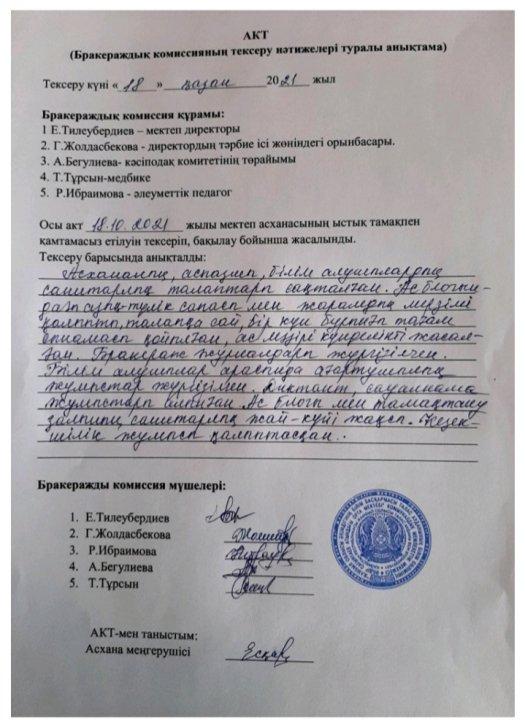 АКТ
(Бракераждық комиссияның тексеру нәтижелері туралы анықтама)
Тексеру күні « 18 » қазан 2021 жыл
Бракераждық комиссия құрамы:
1 Е.Тилеубердиев – мектеп директоры
2. Г.Жолдасбекова - директордың тәрбие ісі жөніндегі орынбасары.
3. А.Бегулиева- кәсіподақ комитетінің төрайымы
4. Т.Тұрсын-медбике
5. Р.Ибраимова - әлеуметтік педагог
Осы акт 18.10.2021 жылы мектеп асханасының ыстық тамақпен
қамтамасыз етілуін тексеріп, бақылау бойынша жасалынды.
Тексеру барысында анықталды:
Асхананың, аспазшың, білім алушылардың
санитарлық талаптары сақталған. Ас блогын-
дағы азық-түлік сапасы мен жарамдық мерзімі
қалыпты, талапқа сай, бір күн бұрынғы тағам
сынамасы қойылған, ас мәзірі күнделікті жасал-
ған. Бракераж журналдары жүргізілген.
Білім алушылар арасында ағартушылық
жұмыстар жүргізілген. Диктант, сауалнама
жұмыстары алынған. Ас блогы мен тамақтану
залының санитарлық жай-күйі жақсы. Кезек-
шілік жұмысы қалыптасқан.
Бракеражды комиссия мүшелері:
1. Е.Тилеубердиев
2. Г.Жолдасбекова
3. Р.Ибраимова
4. А.Бегулиева
5. Т.Тұрсын
АКТ-мен таныстым:
Асхана меңгерушісі